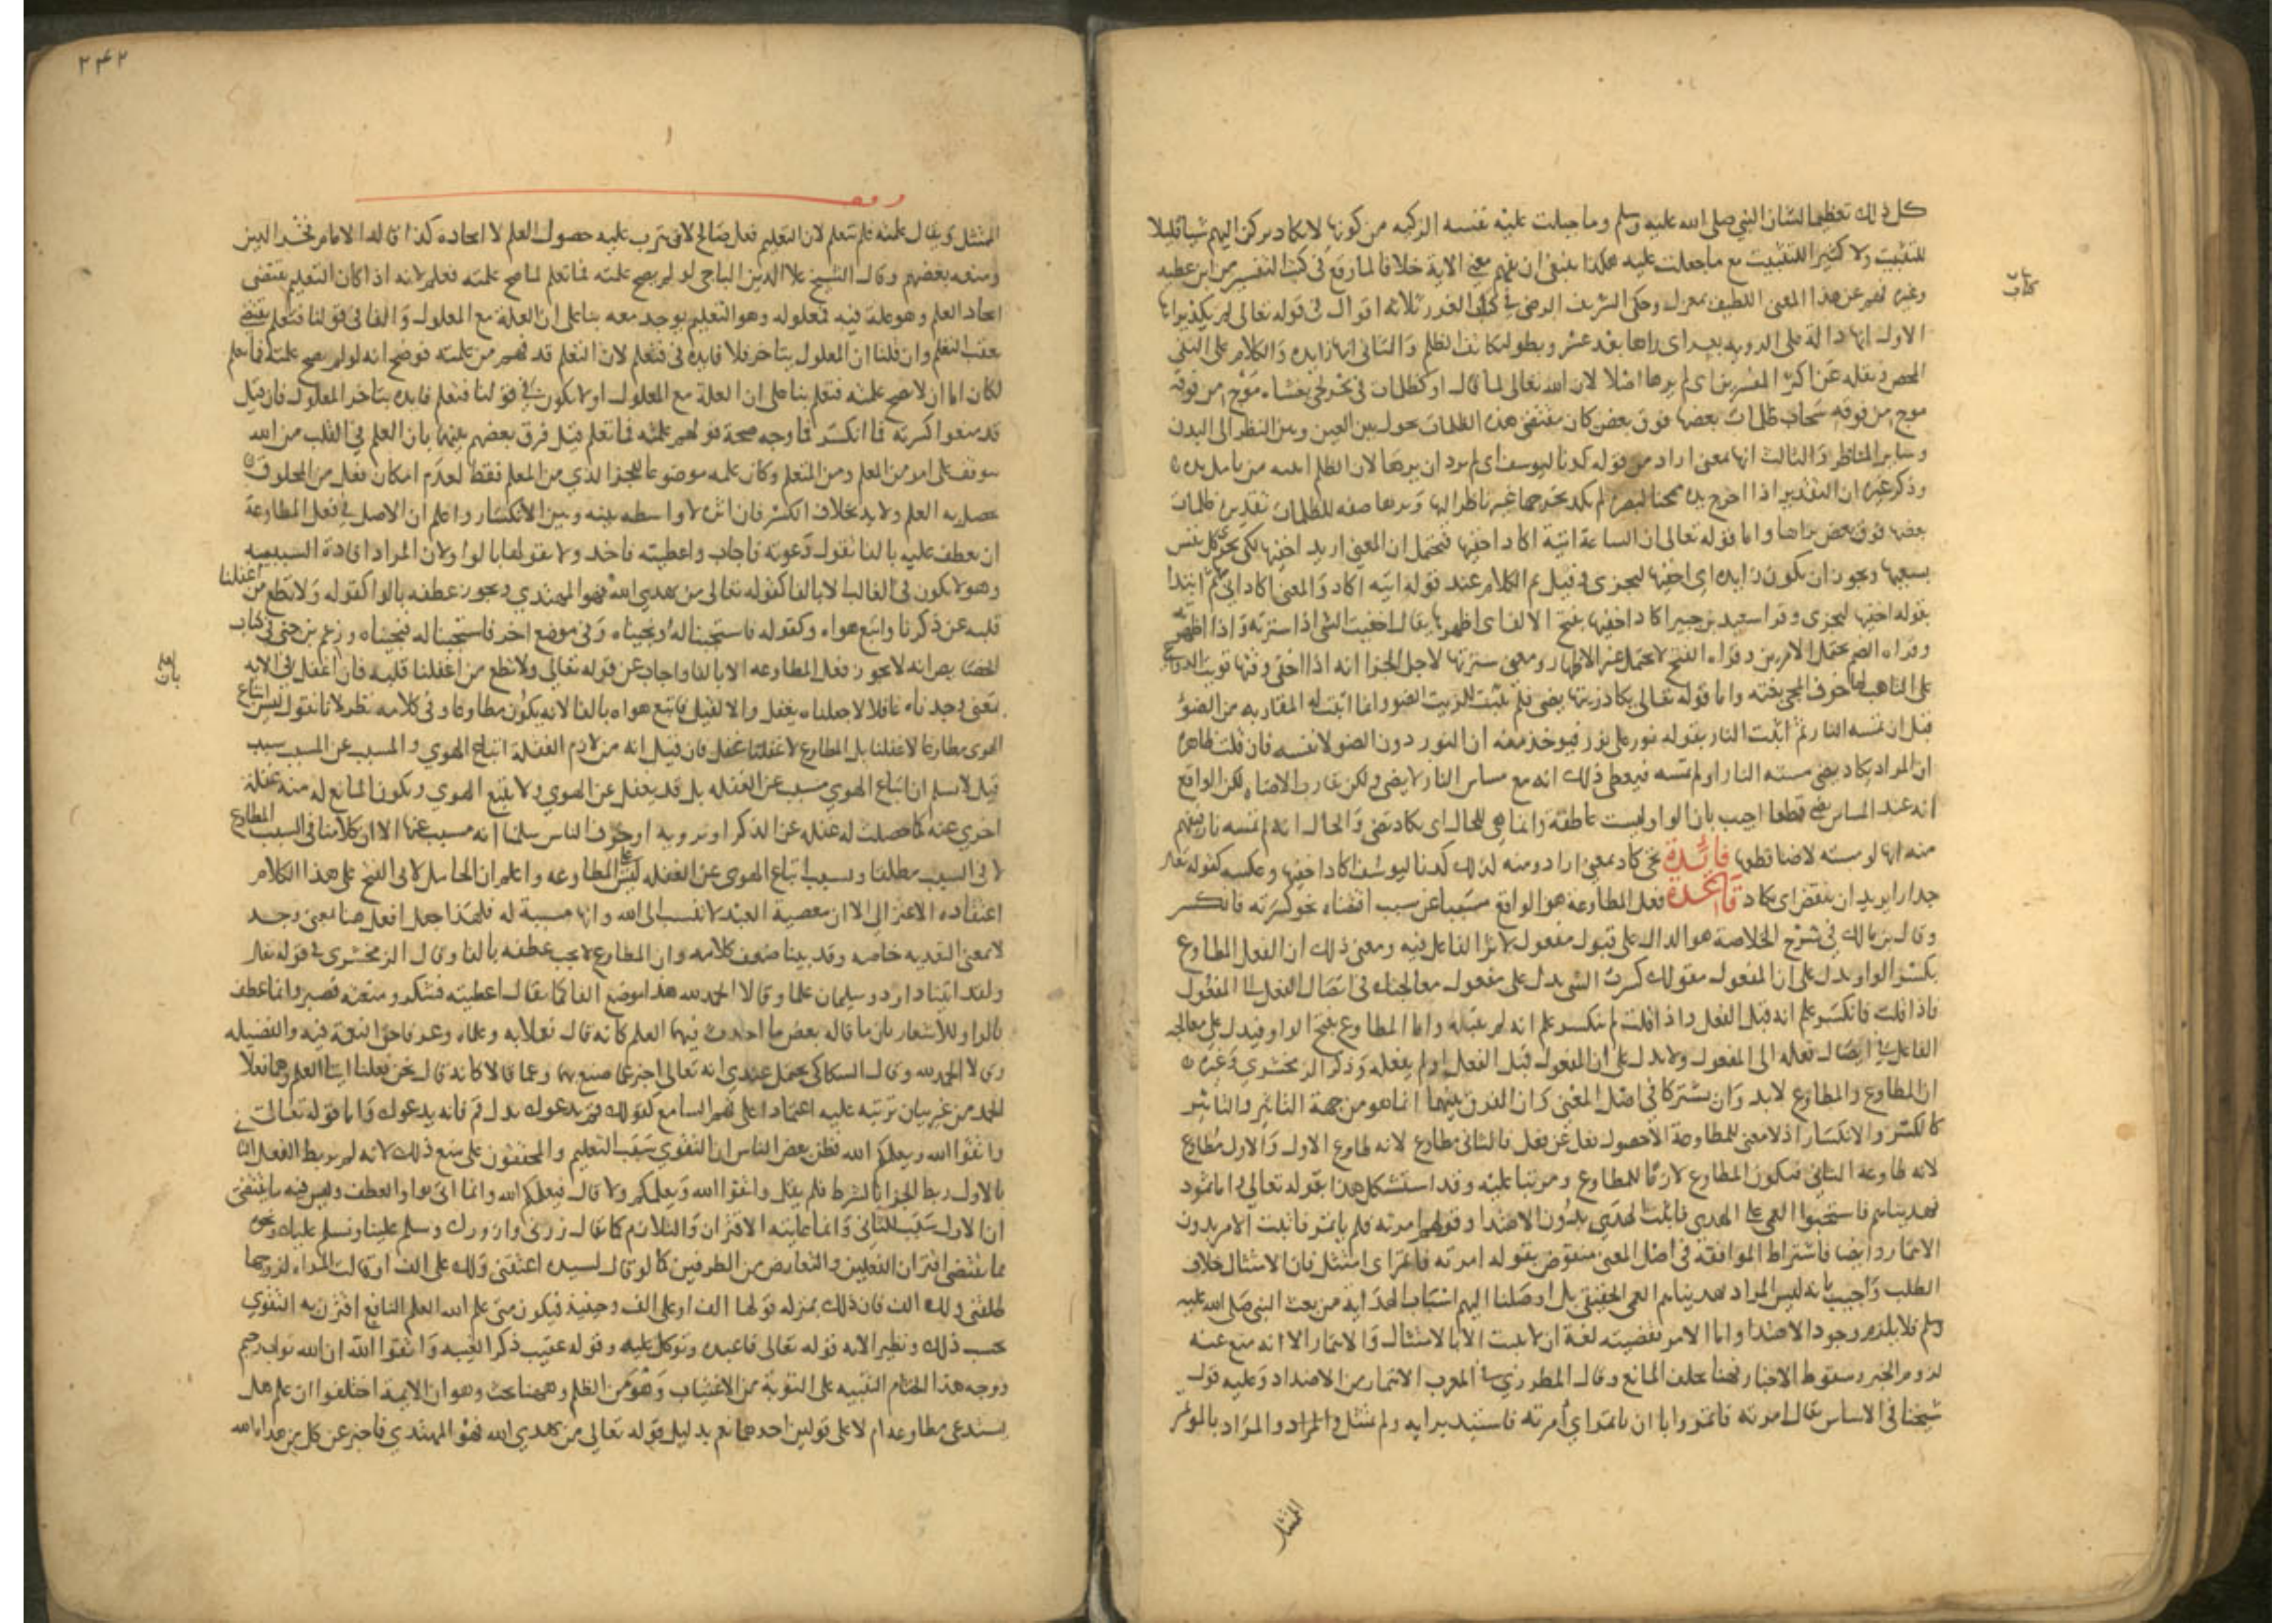 كل ذلك تعظيما لشان النبي صلى الله عليه وسلم وما جبلت عليه نفسه الزكيه من كونها لا يكاد يركن اليهم شيا قليلا
للتثبيت ولا كثيرا للتثبيت مع ما جعلت عليه هكذا ينبغي ان يفهم معنى الاية خلافا لما وقع في كتب التفسير من ابن عطيه
وغيره فهم عن هذا المعنى اللطيف بمعزل وحكى الشريف الرضي في كتاب الغرر ثلاثة اقوال في قوله تعالى لم يكد يراها
الاول انها دالة على الرويه بعسر اي راها بعد عسر وبطو لتكاثف الظلم والثاني انها زايده والكلام على النفي
المحض ونقله عن اكثر المفسرين اي لم يرها اصلا لان الله تعالى لما قال او كظلمات في بحر لجي يغشاه موج من فوقه
موج من فوقه سحاب ظلمات بعضها فوق بعض كان مقتضى هذه الظلمات يحول بين العين وبين النظر الى اليد
وساير المناظر والثالث انها بمعنى اراد من قوله كدنا ليوسف اي لم يرد ان يرها لان الظلم من تامل يده
وذكر غيره ان التقدير اذا اخرج يده ممتحنا لبصره لم يكد يخرجها غير ناظر اليها ويراها صفه للظلمات تقديره ظلمات
بعضها فوق بعض يراها واما قوله تعالى ان الساعة اتية اكاد اخفيها فيحتمل ان المعنى اريد اخفيها لكي تجزى كل نفس
بسعيها ويجوز ان يكون زايده اي اخفيها لتجزى وقيل تم الكلام عند قوله اتيه اكاد والمعنى اكاد اتي ثم ابتدا
بقوله اخفيها لتجزى وقرا سعيد بن جبير اكاد اخفيها بفتح الالف اي اظهرها يقال اخفيت الشي اذا سترته واذا اظهرته
وقراه الضم يحتمل الامرين وقراه الفتح لا تحتمل غير الاظهار ومعنى سترتها لاجل الجزا انه اذا اخفى وقتها
على التاهب لها خوف المجي بغته واما قوله تعالى يكاد زيتها يضي فلم يثبت للزيت الضو وانما اثبت له المقاربه من الضو
قبل ان تمسه النار ثم اثبت النار بقوله نور على نور فيوخذ منه ان النور دون الضو لا نفسه فان قلت ظاهره
ان المراد يكاد يضي مسته النار او لم تمسه فيعطي ذلك انه مع مساس النار لا يضي ولكن يقارب الاضاه لكن الواقع
انه عند المساس يضي قطعا اجيب بان الواو ليست عاطفة وانما هي للحال اي يكاد يضي والحال انه لم تمسه نار فيفهم
منه انها لو مسته لاضا قطعا فائدة تجي كاد بمعنى اراد ومنه كذلك كدنا ليوسف اكاد اخفيها وعكسه كقوله تعالى
جدارا يريد ان ينقض اي يكاد قاعدة فعل المطاوعة هو الواقع مسببا عن سبب اقتضاه نحو كسرته فانكسر
وقال بن مالك في شرح الخلاصة هو الدال على قبول مفعول لاثر الفاعل فيه ومعنى ذلك ان الفعل المطاوع
بكسر الواو يدل على ان المفعول مقولك كسرت الشي يدل على مفعول معالجتك في ايصال الفعل الى المفعول
فاذا قلت فانكسر علم انه قبل الفعل واذا قلت لم ينكسر علم انه لم يقبله واما المطاوع بفتح الواو فيدل على معالجه
الفاعل في ايصال فعله الى المفعول ولا يدل على ان المفعول قبل الفعل او لم يقبله وذكر الزمخشري وغيره
ان المطاوع والمطاوع لابد وان يشتركا في اصل المعنى وان الفرق بينهما انما هو من جهة التاثر والتاثير
كالكسر والانكسار اذ لا معنى للمطاوعة الا حصول فعل عن فعل فالثاني مطاوع لانه طاوع الاول والاول مطاوع
لانه طاوعه الثاني فيكون المطاوع لازما للمطاوع ومرتبا عليه وقد استشكل هذا بقوله تعالى واما ثمود
فهديناهم فاستحبوا العمى على الهدى فاثبت الهدى بدون الاهتدا وقولهم امرته فلم ياتمر فاثبت الامر بدون
الايتمار وايضا فاشتراط الموافقه في اصل المعنى منقوض بقوله امرته فاتمر اي امتثل فان الامتثال خلاف
الطلب واجيب بانه ليس المراد بهديناهم الحقيقي بل اوصلنا اليهم اسباب الهداية من بعث النبي صلى الله عليه
وسلم فلا يلزم وجود الاهتدا واما الامر فيقتضيه لغة ان لا يثبت الا بالامتثال والايتمار الا انه منع عنه
لزوم الجبر وسقوط الاختيار وقال المطرزي في المغرب الايتمار من الاضداد وعليه قول
شيخنا في الاساس يقال امرته فاتمر وابى ان ياتمر اي امرته فاستبد برايه ولم يمتثل والمراد بالموتمر
الممتثل
كتاب
٢٤٢
وقف
الممتثل ويقال علمته فلم يتعلم لان التعليم فعل صالح لان يترتب عليه حصول العلم لا ايجاده كذا قاله الامام فخر الدين
ومنعه بعضهم وقال الشيخ علا الدين الباجي لو لم يصح علمته فما تعلم لما صح علمته فتعلم لانه اذا كان التعليم يقتضي
ايجاد العلم وهو علة فيه فمعلوله وهو التعليم يوجد معه بنا على ان العلة مع المعلول والفا في قولنا فتعلم يقتضي
تعقب التعلم وان قلنا ان المعلول يتاخر فلا فايده في فتعلم لان التعلم قد فهم من علمته فوضح انه لو لم يصح علمته فما تعلم
لكان اما ان لا يصح علمته فتعلم بنا على ان العلة مع المعلول او لا يكون في قولنا فتعلم فايده بتاخر المعلول فان قيل
قد منعوا كسرته فما انكسر فما وجه صحة قولهم علمته فما تعلم قيل فرق بعضهم بينهما بان العلم في القلب من الله
متوقف على امور من المعلم ومن المتعلم وكان علمه موضوعا للجزا الذي من المعلم فقط لعدم امكان فعل من المخلوق
يحصل به العلم ولابد بخلاف الكسر فان اثره لا واسطه بينه وبين الانكسار واعلم ان الاصل في فعل المطاوعة
ان يعطف عليه بالفا تقول دعوته فاجاب واعطيته فاخذ ولا تقولها بالواو لان المراد افادة السببيه
وهو لا يكون في الغالب الا بالفا كقوله تعالى من يهدي الله فهو المهتدي ويجوز عطفه بالواو كقوله ولا تطع من اغفلنا
قلبه عن ذكرنا واتبع هواه وكقوله فاستجبنا له ونجيناه وفي موضع اخر فاستجبنا له فنجيناه وزعم بن جني في كتاب
الخصايص انه لا يجوز فعل المطاوعه الا بالفا واجاب عن قوله تعالى ولا تطع من اغفلنا قلبه فان اغفل في الايه
بمعنى وجدناه غافلا لا جعلناه يغفل والا لقيل فاتبع هواه بالفا لانه يكون مطاوعا وفي كلامه نظر لانا نقول ليس اتباع
الهوى مطاوعا لاغفلنا بل المطاوع لاغفلنا غفل فان قيل انه من لازم الغفلة اتباع الهوى والمسبب عن المسبب سبب
قيل لا نسلم ان اتباع الهوى مسبب عن الغفله بل قد يغفل عن الهوى ولا يتبع الهوى ويكون المانع له منه غفلة
اخرى عنه كما حصلت له غفله عن الذكر او خوف الناس سلمنا انه مسبب عنها الا ان كلامنا في السبب المطاوع
لا في السبب مطلقا وسبب اتباع الهوى عن الغفله ليس على المطاوعه واعلم ان الحامل لابي الفتح على هذا الكلام
اعتقاده الاعتزالي الا ان معصية العبد لا تنسب الى الله وانها مسببة له فلهذا جعل افعل هنا بمعنى وجد
لا بمعنى التعديه خاصه وقد بينا ضعف كلامه وان المطاوع لا يجب عطفه بالفا وقال الزمخشري في قوله تعالى
ولقد اتينا داود وسليمان علما وقالا الحمد لله هذا موضع الفا كما يقال اعطيته فشكر ومنعته فصبر وانما عطف
بالواو للاشعار بان ما قاله بعض ما احدث فيهما العلم كانه قال فعلا به وعلماه وعرفا حق النعمة فيه والفضيله
وقالا الحمد لله وقال السكاكي يحتمل عندي انه تعالى اخبر عما صنع بهما وعما قالا كانه قال نحن فعلنا ايتا العلم وهما فعلا
الحمد من غير بيان ترتبه عليه اعتمادا على فهم السامع كقولك قم يدعوك بدل قم فانه يدعوك واما قوله تعالى
واتقوا الله ويعلمكم الله فظن بعض الناس ان التقوى سبب التعليم والمحققون على منع ذلك لانه لم يربط الفعل الثاني
بالاول ربط الجزا بالشرط فلم يقل واتقوا الله ويعلمكم ولا قال فيعلمكم الله وانما اتى بواو العطف وليس فيه ما يقتضي
ان الاول سبب للثاني وانما غايته الاقتران والتلازم كما يقال زرني وازورك وسلم علينا ونسلم عليك ونحوه
مما يقتضي اقتران الفعلين والتعارض من الطرفين كما لو قال لسيده اعتقني ولك علي الف او قالت المراه لزوجها
طلقني ولك الف فان ذلك بمنزله قولها الف او على الف وحينيذ فيكون متى علم الله العلم النافع اقترن به التقوى
بحسب ذلك ونظير الايه قوله تعالى فاعبده وتوكل عليه وقوله عقيب ذكر الغيبه واتقوا الله ان الله تواب رحيم
ووجه هذا الختام التنبيه على التوبة من الاغتياب وهو من الظلم وههنا بحث وهو ان الايمة اختلفوا ان علم هل
يستدعي مطاوعه ام لا على قولين احدهما نعم بدليل قوله تعالى من يهدي الله فهو المهتدي فاخبر عن كل من هداه الله